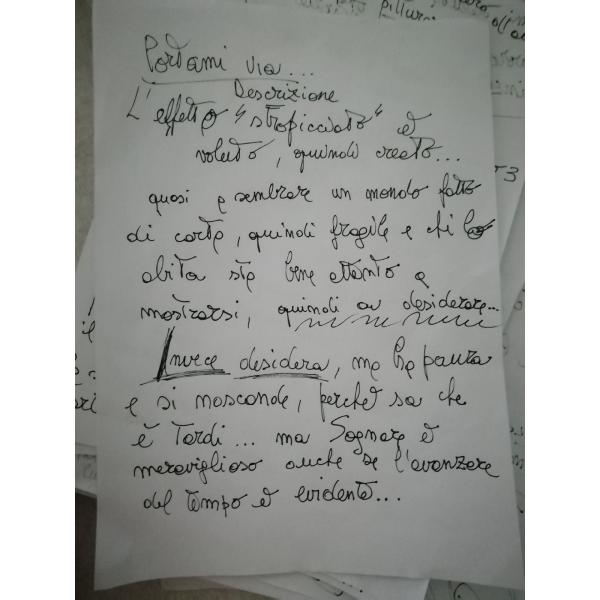 Portami via...
Descrizione
L'effetto "stropicciato" è
voluto, quindi creato...
quasi a sembrare un mondo fatto
di carta, quindi fragile e chi lo
abita sta bene attento a
mostrarsi, quindi a desiderare...
Invece desidera, ma ha paura
e si nasconde, perché sa che
è tardi... ma Sognare è
meraviglioso anche se l'avanzare
del tempo è evidente...